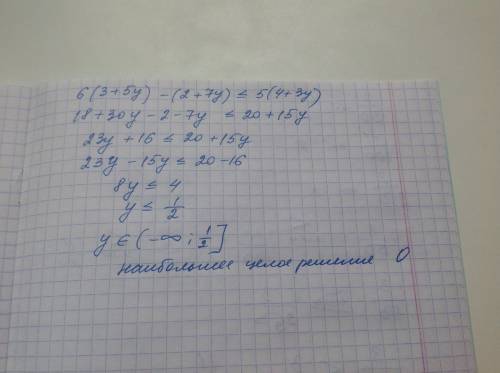 6(3+5y) -(2+7y) ≤ 5(4+3y)
18+30y-2-7y ≤ 20+15y
23y+16 ≤ 20+15y
23y-15y ≤ 20-16
8y ≤ 4
y ≤ 1/2
y ∈ (-∞; 1/2]
наибольшее целое решение 0